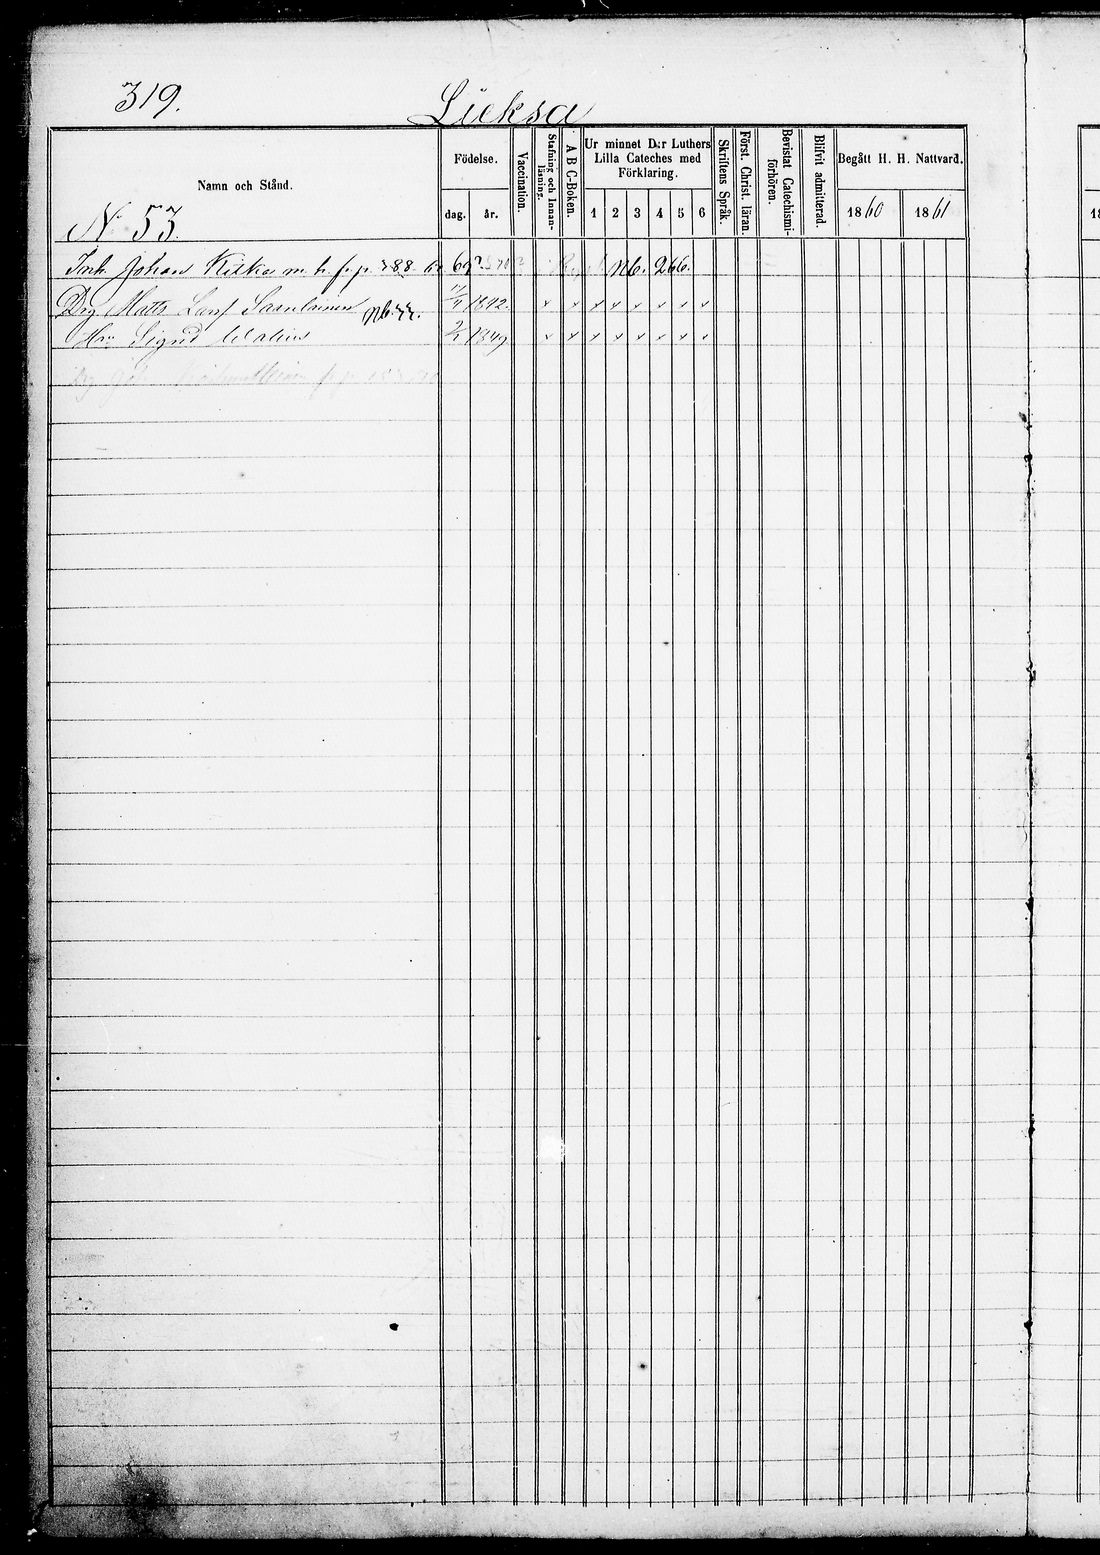 319.
Lieksa
Namn och Stånd.
Födelse.
dag. år.
Vaccination.
Stafning och Innan-läsning.
A B C-Boken.
Ur minnet D:r Luthers Lilla Cateches med Förklaring.
1 2 3 4 5 6
Skriftens Språk.
Först. Christ. läran.
Bevistat Catechismi-förhören.
Blifvit admitterad.
Begått H. H. Nattvard.
1860 1861
N 53.
Inh. Johan Kitka m. h. fr. p. 388 Nb. 266.
Drg Matts Larsf Saarelainen 1842. x x x x x x x x
Hu Sigrid 1849 x x x x x x x x